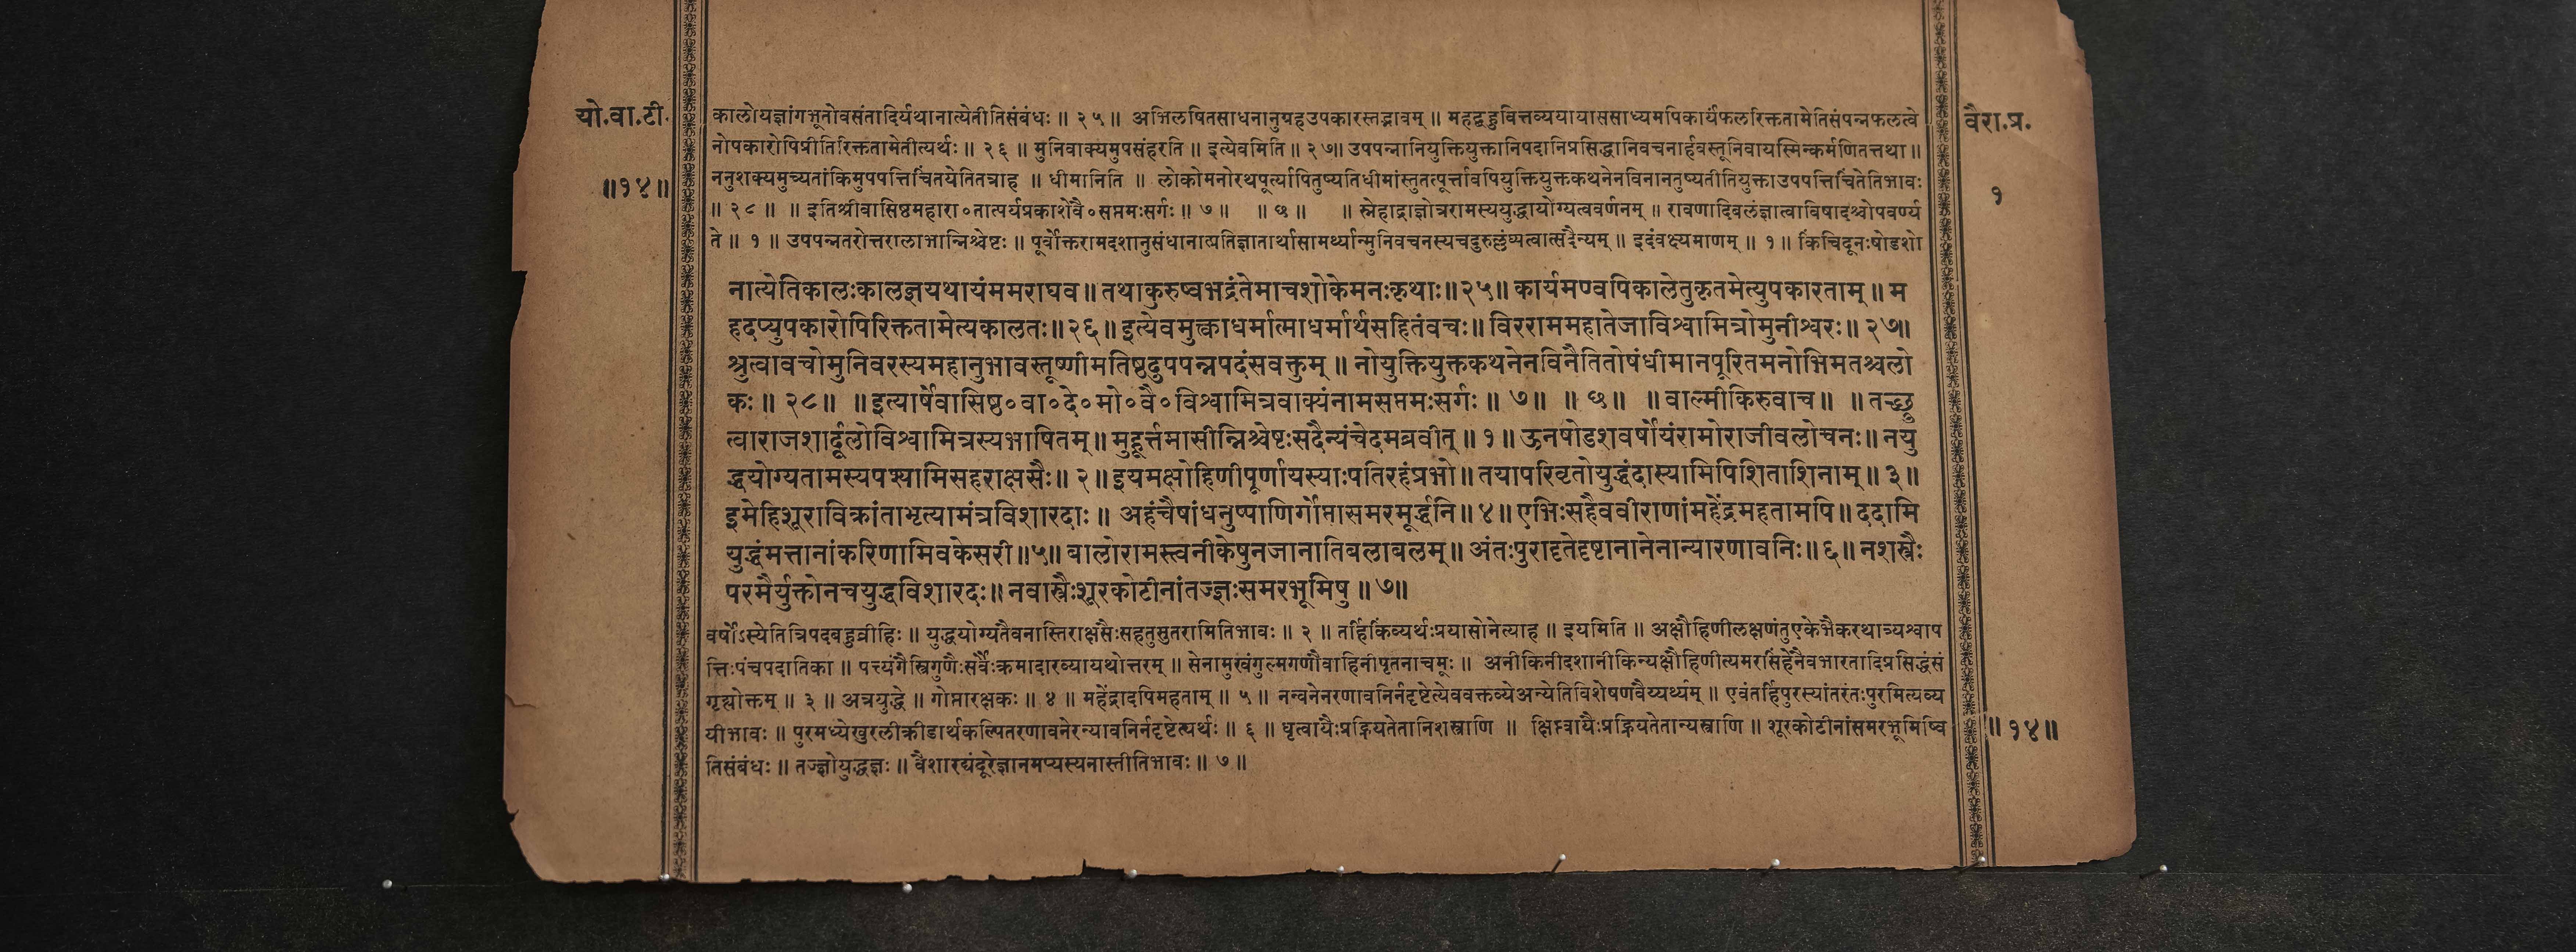 यो.वा.टी.
॥१४॥
कालोयज्ञांगभूतोवसंतादिर्यथानात्येतीतिसंबंधः ॥ २५ ॥ अभिलषितसाधनानुग्रहउपकारस्तद्भावम् ॥ महद्बहुवित्तव्ययायाससाध्यमपिकार्यंफलरिक्ततामेतिसंपन्नफलत्वे
नोपकारोपिप्रीतिरिक्ततामेतीत्यर्थः ॥ २६ ॥ मुनिवाक्यमुपसंहरति ॥ इत्येवमिति ॥ २७॥ उपपन्नानियुक्तियुक्तानिपदानिप्रसिद्धानिवचनार्हवस्तूनिवायस्मिन्कर्मणितत्तथा ॥
ननुशक्यमुच्यतांकिमुपपत्तिचिंतयेतितत्राह ॥ धीमानिति ॥ लोकोमनोरथपूर्त्यापितुष्यतिधीमांस्तुतत्पूर्त्तावपियुक्तियुक्तकथनेनविनानतुष्यतीतियुक्ताउपपत्तिचिंतेतिभावः
॥ २८ ॥ ॥ इतिश्रीवासिष्ठमहारा॰तात्पर्यप्रकाशेवै॰सप्तमःसर्गः ॥ ७ ॥ ॥ छ ॥ ॥ स्नेहाद्राज्ञोत्ररामस्ययुद्धायोग्यत्ववर्णनम् ॥ रावणादिबलंज्ञात्वाविषादश्चोपवर्ण्य
ते ॥ १ ॥ उपपन्नतरोत्तरालाभान्निश्चेष्टः ॥ पूर्वोक्तरामदशानुसंधानात्प्रतिज्ञातार्थासामर्थ्यान्मुनिवचनस्यचदुरुल्लंघ्यत्वात्सदैन्यम् ॥ इदंवक्ष्यमाणम् ॥ १ ॥ किंचिदूनःषोडशो
नात्येतिकालःकालज्ञयथायंममराघव ॥ तथाकुरुष्वभद्रंतेमाचशोकेमनःकृथाः॥२५॥ कार्यमण्वपिकालेतुकृतमेत्युपकारताम् ॥ म
हदप्युपकारोपिरिक्ततामेत्यकालतः॥२६॥ इत्येवमुत्क्वाधर्मात्माधर्मार्थसहितंवचः॥ विरराममहातेजाविश्वामित्रोमुनीश्वरः॥ २७॥
श्रुत्वावचोमुनिवरस्यमहानुभावस्तूष्णीमतिष्ठदुपपन्नपदंसवक्तुम् ॥ नोयुक्तियुक्तकथनेनविनैतितोषंधीमानपूरितमनोभिमतश्चलो
कः॥ २८॥ ॥ इत्यार्षेवासिष्ठ॰वा॰दे॰मो॰वै॰विश्वामित्रवाक्यंनामसप्तमःसर्गः ॥ ७॥ ॥ छ॥ ॥ वाल्मीकिरुवाच॥ ॥ तच्छ्रु
त्वाराजशार्दूलोविश्वामित्रस्यभाषितम् ॥ मुहूर्त्तमासीन्निश्चेष्टःसदैन्यंचेदमब्रवीत् ॥ १॥ ऊनषोडशवर्षोयंरामोराजीवलोचनः॥ नयु
द्धयोग्यतामस्यपश्यामिसहराक्षसैः॥ २॥ इयमक्षोहिणीपूर्णायस्याःपतिरहंप्रभो॥ तयापरिवृतोयुद्धंदास्यामिपिशिताशिनाम् ॥ ३॥
इमेहिशूराविक्रांताभृत्यामंत्रविशारदाः ॥ अहंचैषांधनुष्पाणिर्गोप्तासमरमूर्द्धनि॥ ४॥ एभिःसहैववीराणांमहेंद्रमहतामपि॥ ददामि
युद्धंमत्तानांकरिणामिवकेसरी॥५॥ बालोरामस्त्वनीकेषुनजानातिबलाबलम्॥ अंतःपुरादृतेदृष्टानानेनान्यारणावनिः॥६॥ नशस्त्रैः
परमैर्युक्तोनचयुद्धविशारदः॥ नवास्त्रैःशूरकोटीनांतज्ज्ञःसमरभूमिषु ॥ ७॥
वर्षोऽस्येतित्रिपदबहुव्रीहिः ॥ युद्धयोग्यतैवनास्तिराक्षसैःसहतुसुतरामितिभावः ॥ २ ॥ तर्हिकिंव्यर्थःप्रयासोनेत्याह ॥ इयमिति ॥ अक्षौहिणीलक्षणंतुएकेभैकरथात्र्यश्वाप
त्तिःपंचपदातिका ॥ पत्त्यंगैस्त्रिगुणैःसर्वैःक्रमादाख्यायथोत्तरम् ॥ सेनामुखंगुल्मगणौवाहिनीपृतनाचमूः ॥ अनीकिनीदशानीकिन्यक्षौहिणीत्यमरसिंहेनैवभारतादिप्रसिद्धंसं
गृह्योक्तम् ॥ ३ ॥ अत्रयुद्धे ॥ गोप्तारक्षकः ॥ ४ ॥ महेंद्रादपिमहताम् ॥ ५ ॥ नन्वनेनरणावनिर्नदृष्टेत्येववक्तव्येअन्येतिविशेषणवैय्यर्थ्यम् ॥ एवंतर्हिपुरस्यांतरंतःपुरमित्यव्य
यीभावः ॥ पुरमध्येखुरलीक्रीडार्थकल्पितरणावनेरन्यावनिर्नदृष्टेत्यर्थः ॥ ६ ॥ धृत्वायैःप्रह्रियतेतानिशस्त्राणि ॥ क्षिप्त्वायैःप्रह्रियतेतान्यस्त्राणि ॥ शूरकोटीनांसमरभूमिष्वि
तिसंबंधः ॥ तज्ज्ञोयुद्धज्ञः ॥ वैशारद्यंदूरेज्ञानमप्यस्यनास्तीतिभावः ॥ ७ ॥
वैरा.प्र.
१
॥ १४॥